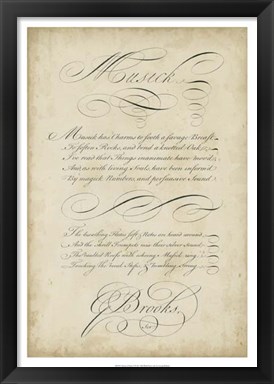 Musick
Musick has Charms to sooth a savage Breast
To soften Rocks, and bend a knotted Oak;
I've read that Things inanimate have mov'd
And as with living Souls, have been inform'd
By magick Numbers, and persuasive Sound
The trembling Flute soft Notes are heard around
And the shrill Trumpets mix their silver Sound
The Vaulted Roofs with echoing Musick ring
Touching the Vocal &
Brooks